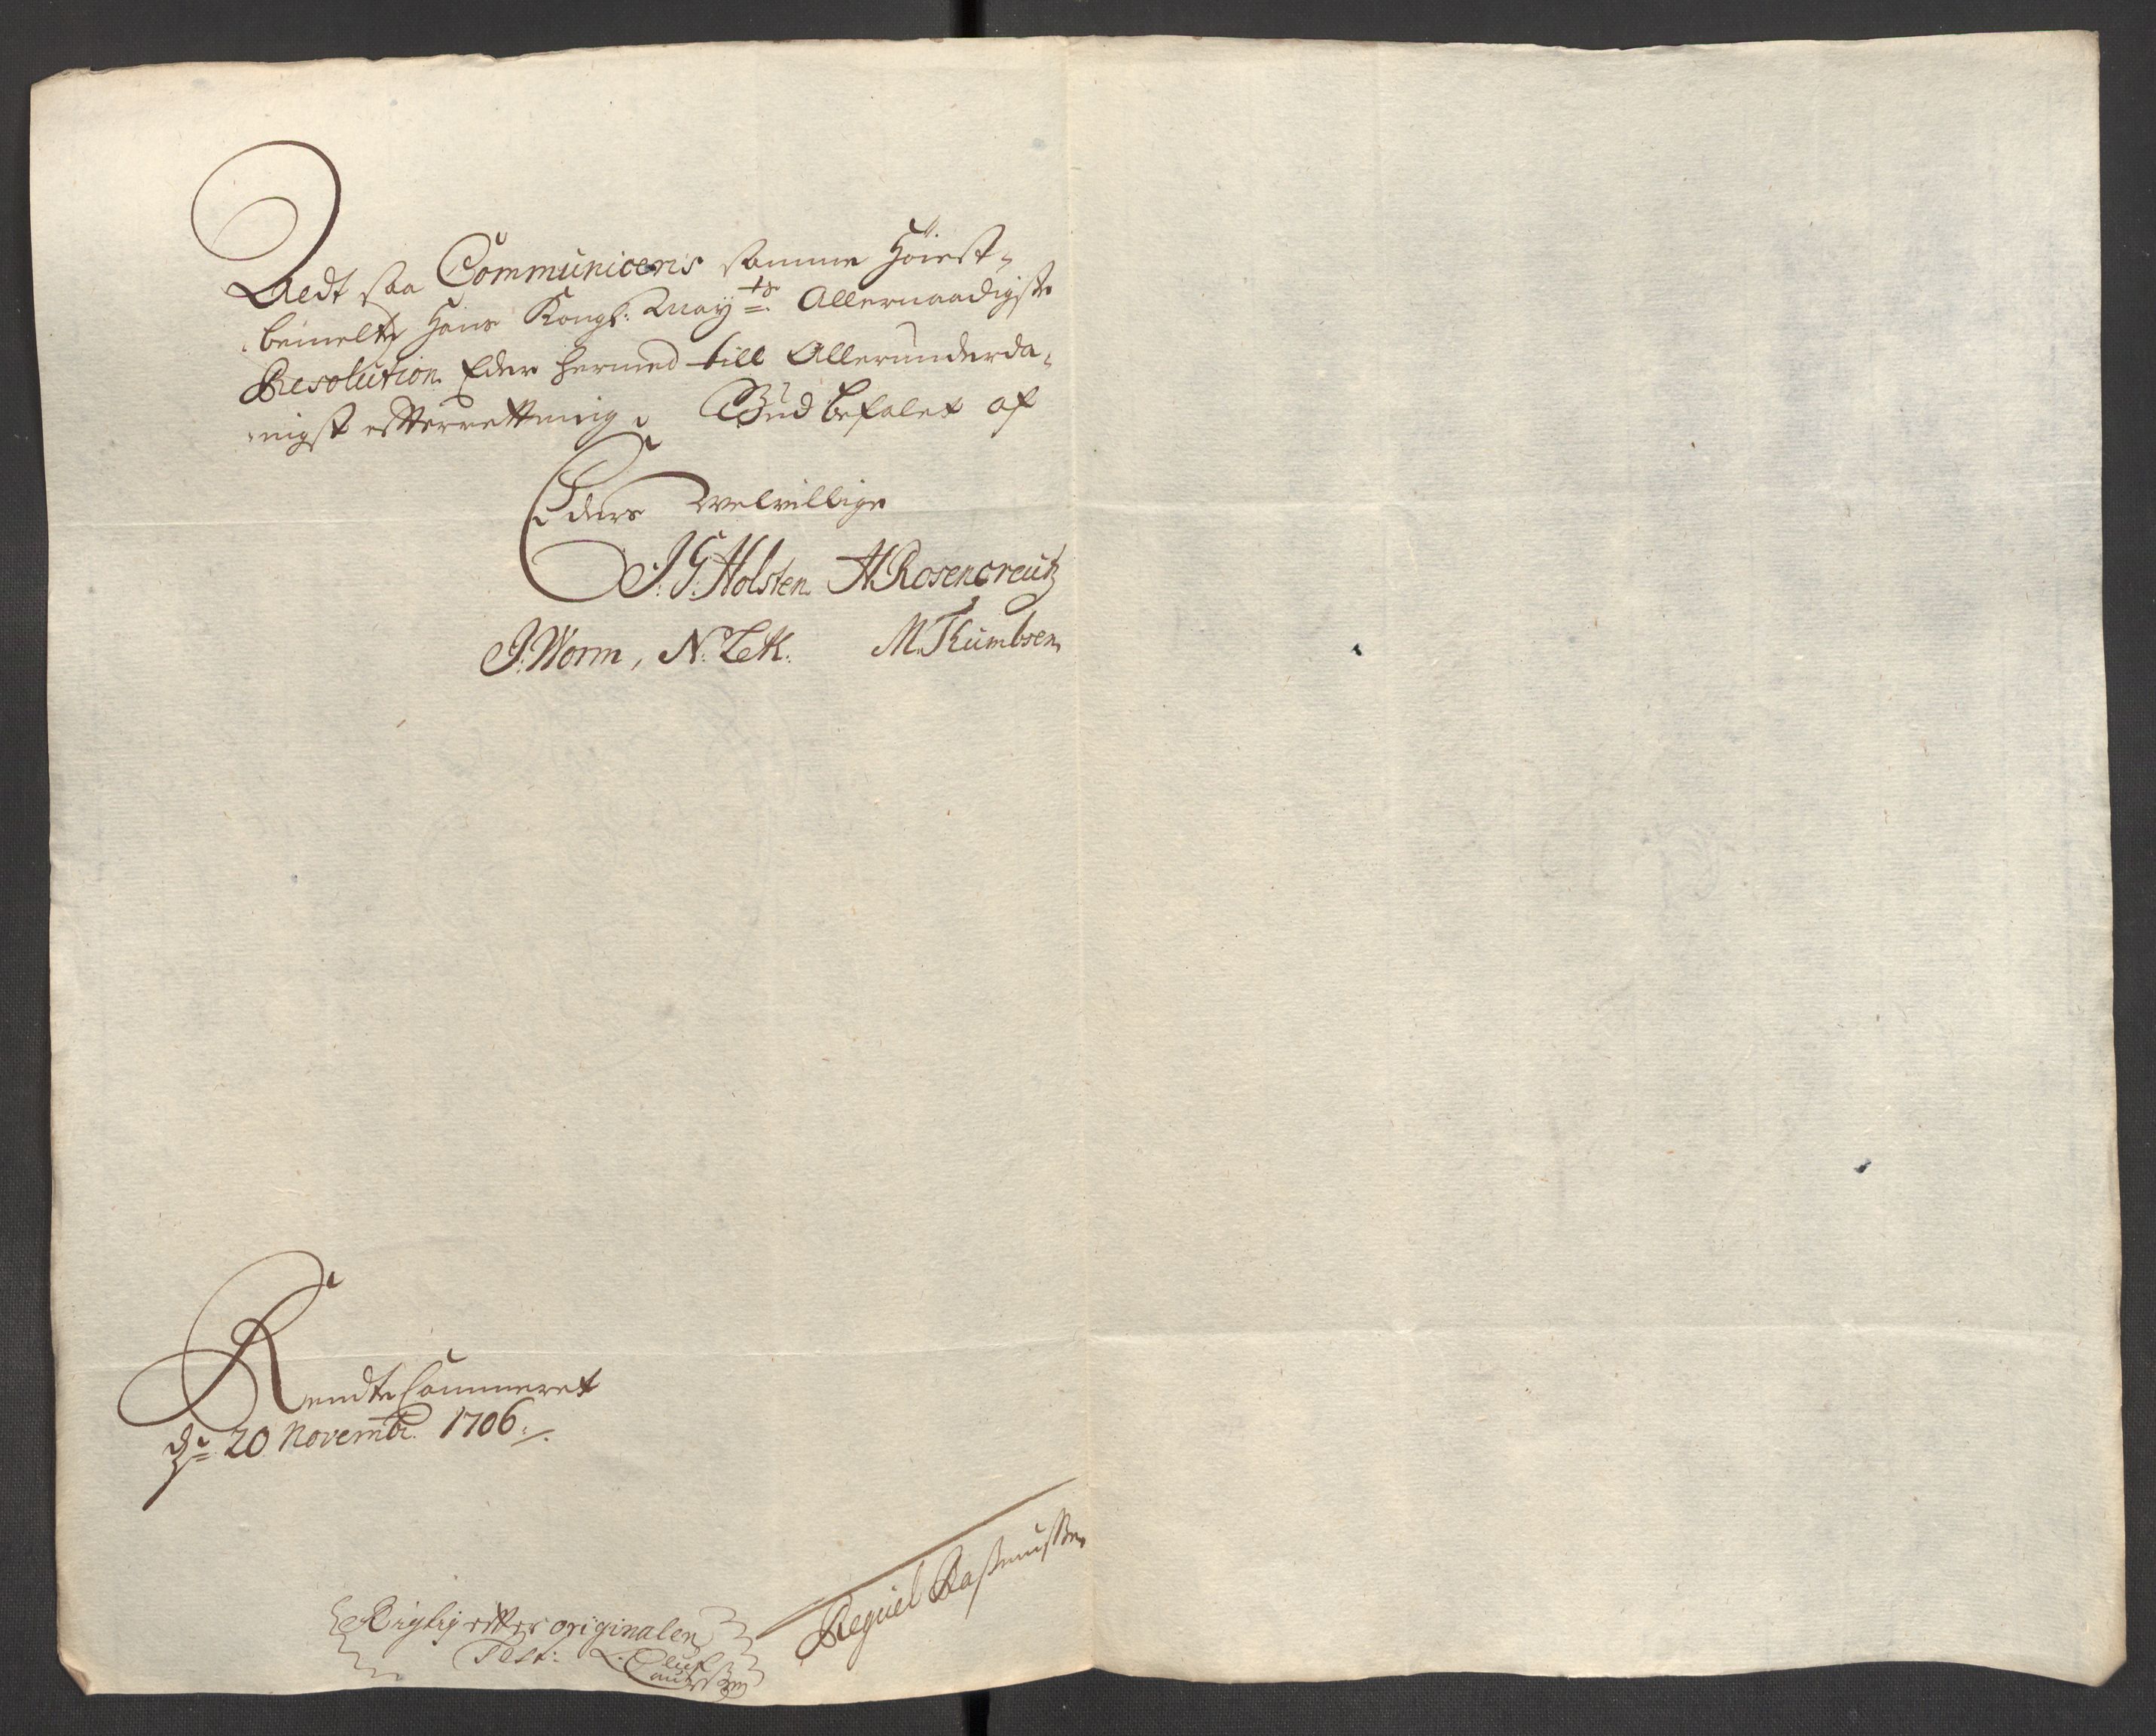 Ledt saa Communiceris samme Høiest-
bemelte Hans Kongl: May:ts Allernaadigste
Resolution Eder hermed till Allerunderda-
nigst efterretning, Gud befalet af
Eders velvillige
J. G. Holsten. A Rosencreutz
J. Worm, N: M. Thumbsen
Rendte Cammeret
dn 20 Novembr. 1706.
Rigtig efter originalen
Test: L. Oluf
Regniel Rasmussen